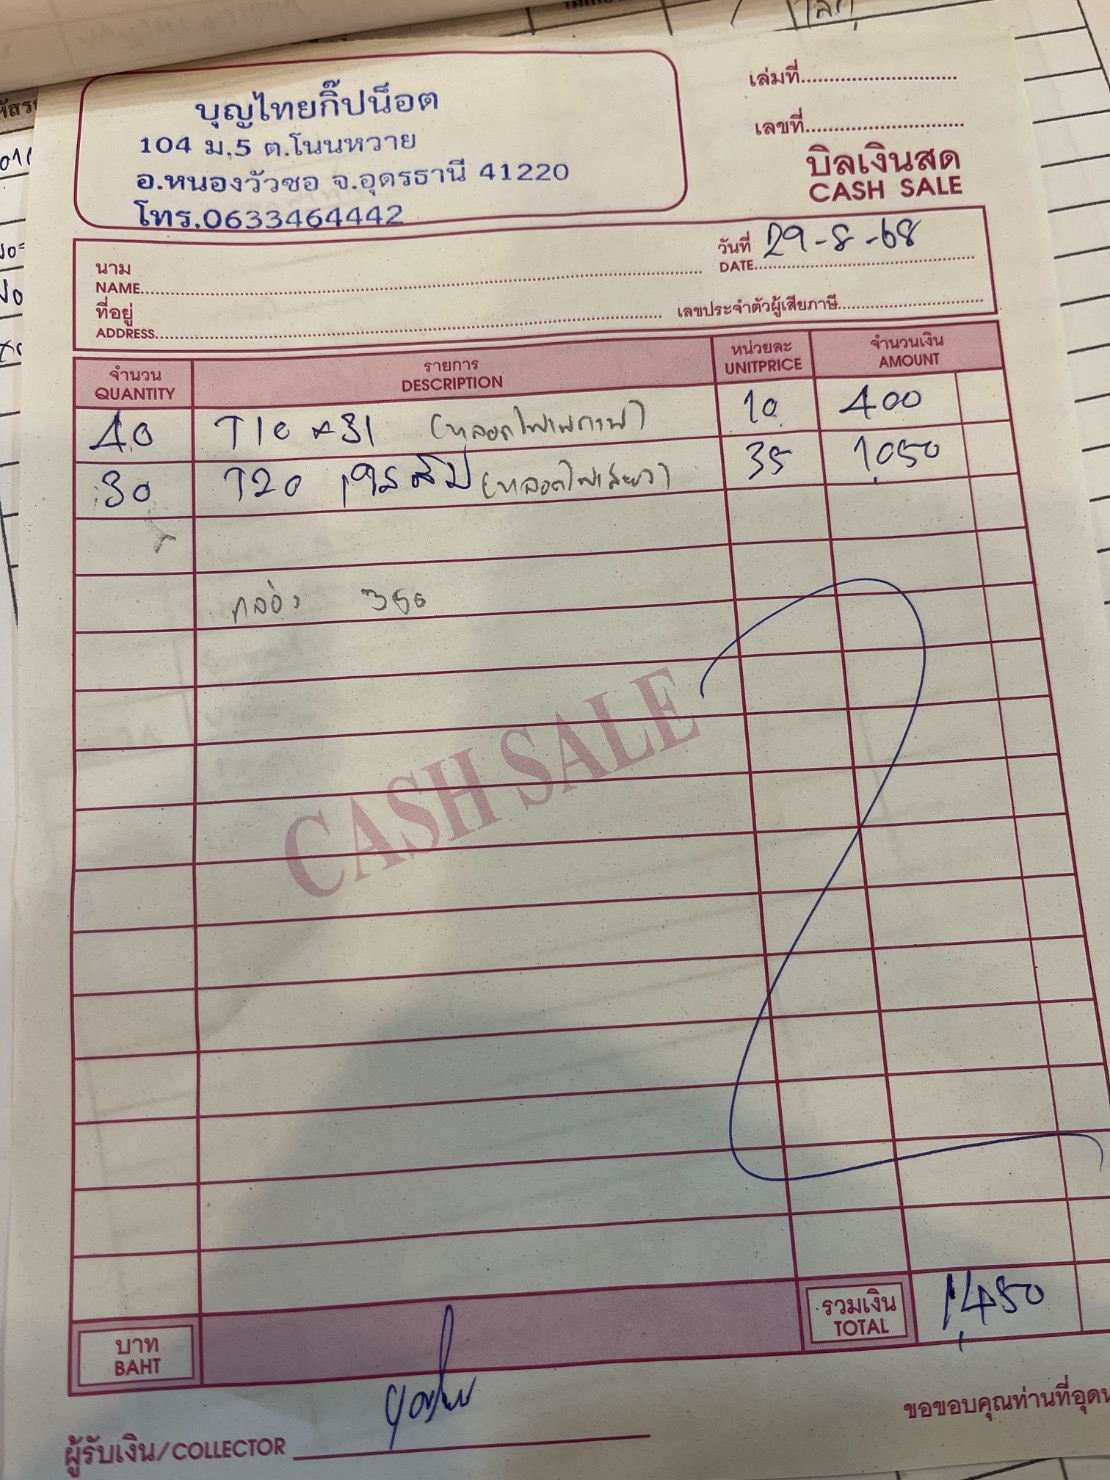 บุญไทยกิ๊ปน็อต
104 ม.5 ต.โนนหวาย
อ.หนองวัวซอ จ.อุดรธานี 41220
โทร.0633464442
เล่มที่
เลขที่
บิลเงินสด
CASH SALE
วันที่ 29-8-68
DATE
นาม
NAME
ที่อยู่
ADDRESS
เลขประจำตัวผู้เสียภาษี
จำนวน รายการ หน่วยละ จำนวนเงิน
QUANTITY DESCRIPTION UNITPRICE AMOUNT
40 T10 x31 10 400
30 T20 35 1,050
กล่อง 350
CASH SALE
บาท รวมเงิน 1,450
BAHT TOTAL
ขอขอบคุณท่านที่อุดห
ผู้รับเงิน/COLLECTOR